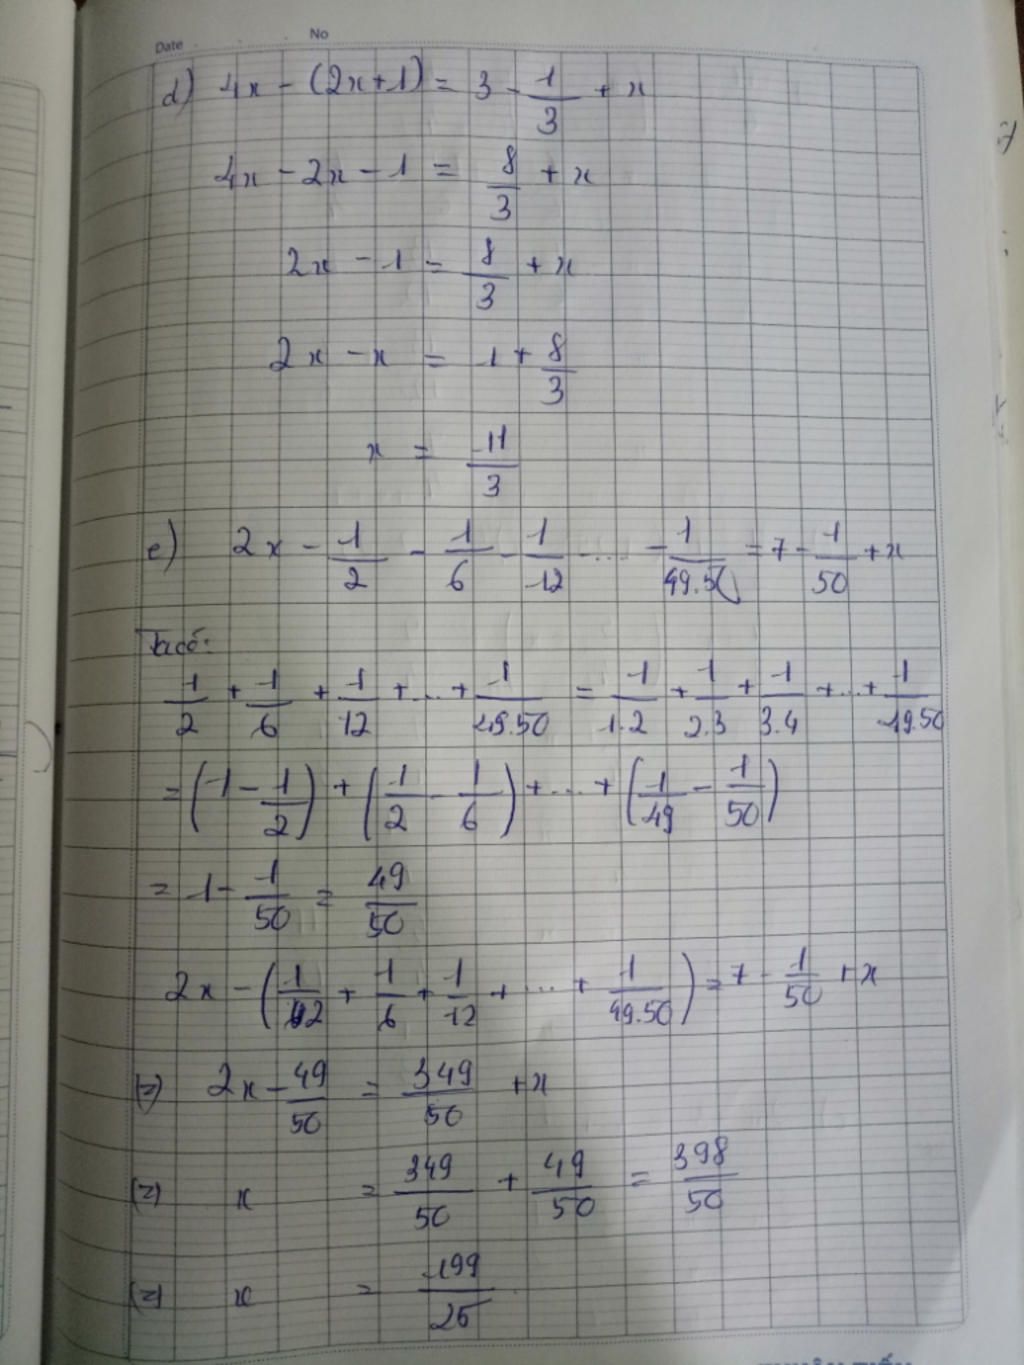 Date No
d) 4x - (2x+1) = 3 - 1/3 + x
4x - 2x - 1 = 8/3 + x
2x - 1 = 8/3 + x
2x - x = 1 + 8/3
x = 11/3
e) 2x - 1/2 - 1/6 - 1/12 ... - 1/49.50 = 7 - 1/50 + x
Ta có:
1/2 + 1/6 + 1/12 + ... + 1/49.50 = 1/1.2 + 1/2.3 + 1/3.4 + ... + 1/49.50
= (1 - 1/2) + (1/2 - 1/6) + ... + (1/49 - 1/50)
= 1 - 1/50 = 49/50
2x - (1/2 + 1/6 + 1/12 + ... + 1/49.50) = 7 - 1/50 + x
(=) 2x - 49/50 = 349/50 + x
(=) x = 349/50 + 49/50 = 398/50
(=) x = 199/25